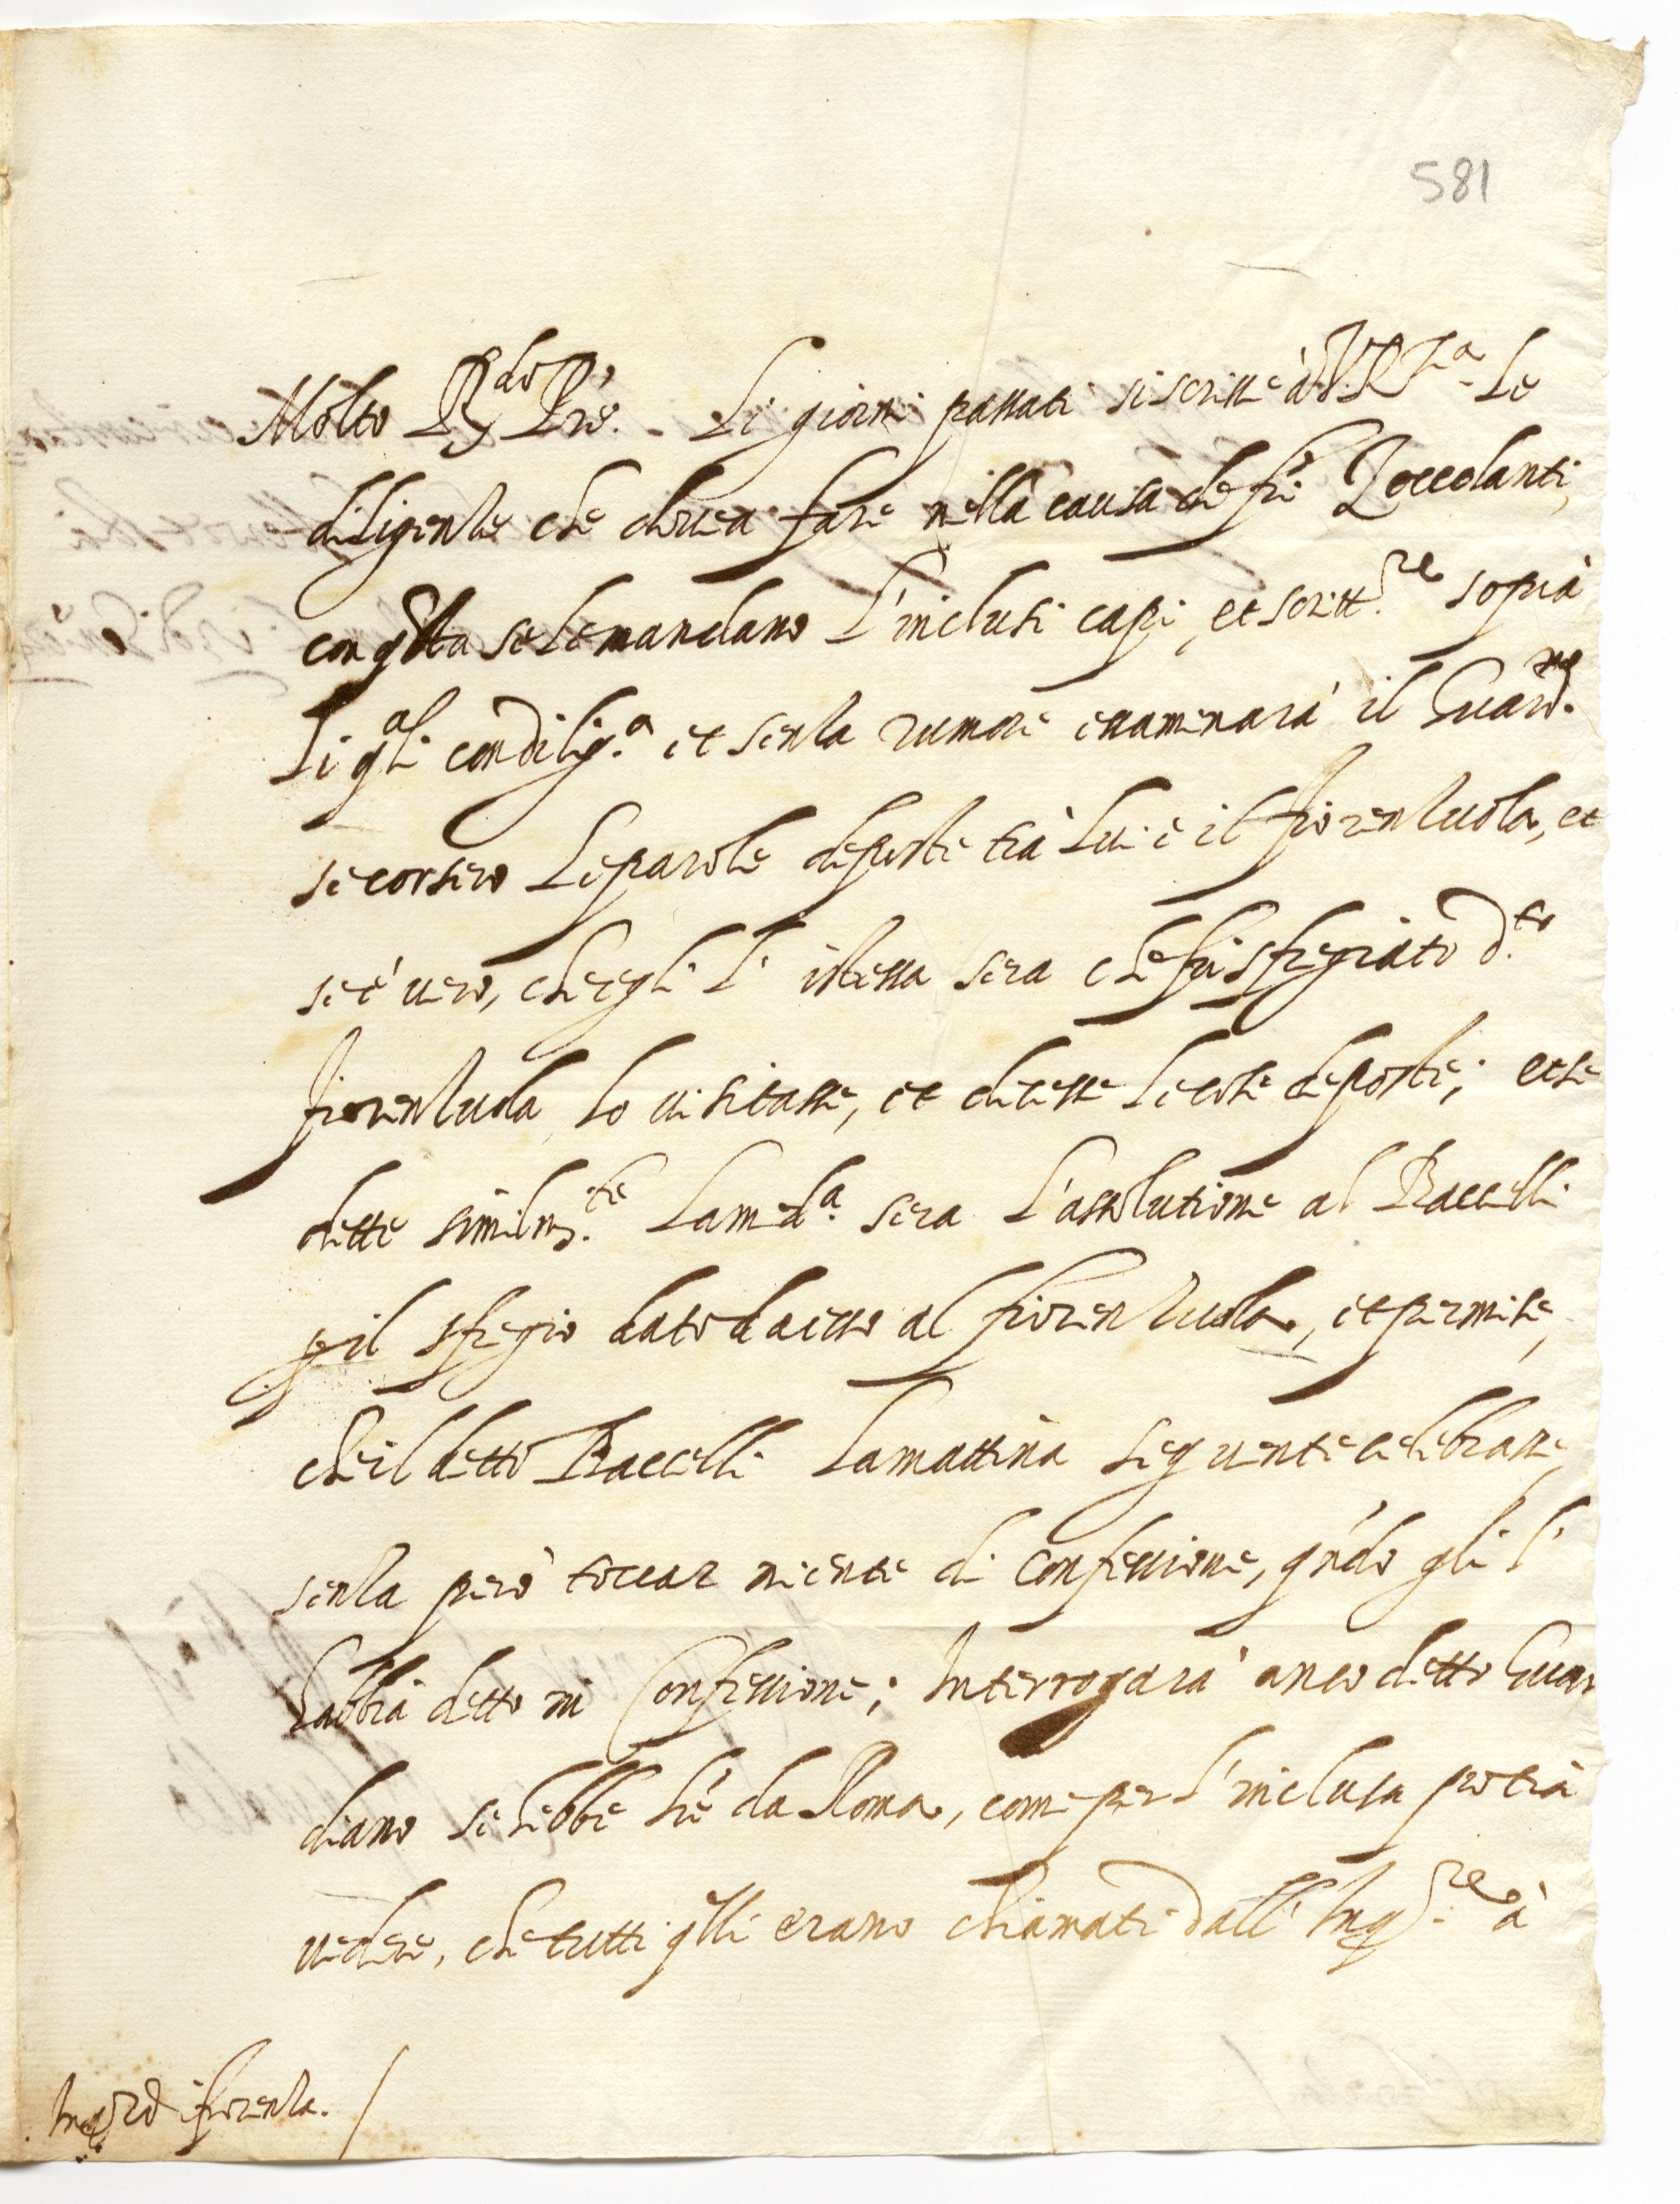 581
Molto R.do Pre. Li giorni passati si scrisse à V. R.za le
diligenze che dovea fare nella causa de fri Zoccolanti,
con qsta se le mandano l'inclusi capi, et scritt.re sopra
li qali con dilig.a et senza rumore essaminarà il Guard.no
se corsero le parole deposte trà lui e il fiorenzuola, et
se è vero, che egli l'istessa sera che fu sfregiato d.to
fiorenzuola lo visitasse, et dicesse le cose deposte; et se
dette similm.te la med.a sera l'assolutione al Baccelli
p il sfregio dato da esso al fiorenzuola, et permise,
che il detto Baccelli la mattina seguente celebrasse,
senza però toccar niente di confessione, qndo gli l'
habbia detto in Confessione; Interrogarà anco detto Guar
diano se hebbe lre da Roma, come per l'inclusa potrà
vedere, che tutti qlli erano chiamati dall'Inq.re à
Inq.re di fiorenza. /